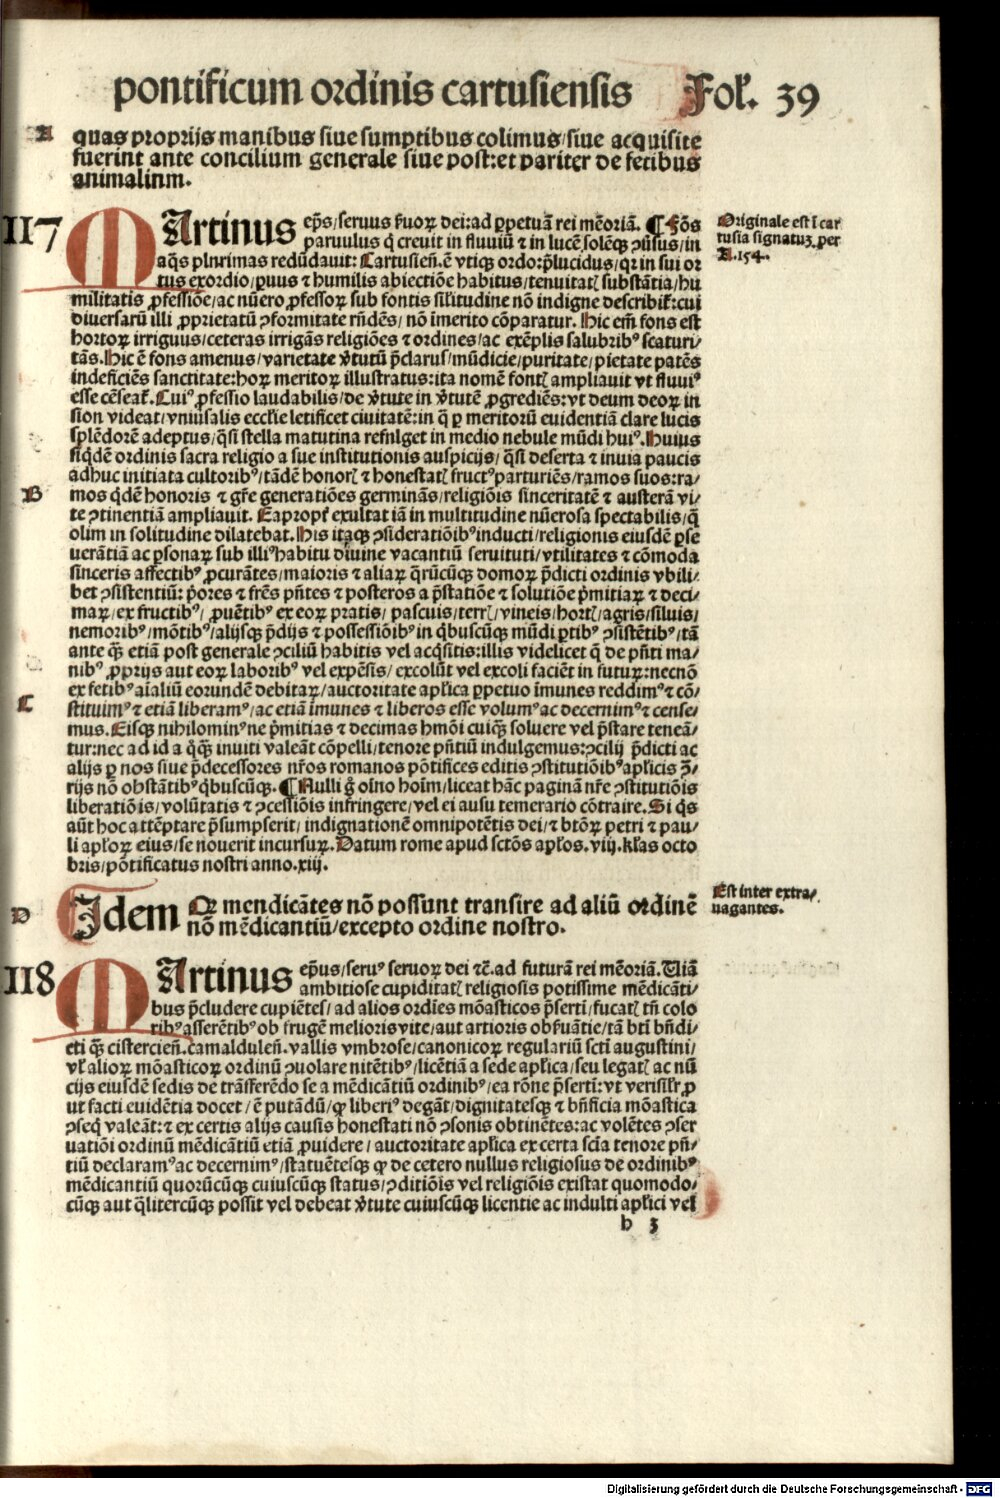 pontificum ordinis cartusiensis Fol. 39
A
quas proprijs manibus siue sumptibus colimus/siue acquisite
fuerint ante concilium generale siue post:et pariter de fetibus
animalinm.
117
MArtinus ep̃s/seruus ẜuoꝝ dei:ad ꝑpetuã rei mẽoriã. ¶ Fõs
paruulus q̃ creuit in fluuiũ ⁊ in lucẽ solẽqꝫ ꝯũsus/in
aq̃s plnrimas redũdauit: Cartusieñ.ẽ vtiqꝫ ordo:p̃lucidus/qꝛ in sui oꝛ
tus exoꝛdio/ꝑuus ⁊ humilis abiectiõe habitus/tenuitatꝭ substãtia/hu
militatis ꝓfessiõe/ac nũero ꝓfessoꝝ sub fontis sil̃itudine nõ indigne describit̃:cui
diuersarũ illi ꝓprietatũ ꝯformitate rñdẽs/nõ ĩmerito cõparatur. Hic em̃ fons est
hortoꝝ irriguus/ceteras irrigãs religiões ⁊ ordines/ac exẽplis salubribꝰ scaturi/
tãs.Hic ẽ fons amenus/varietate v̾tutũ p̃clarus/mũdicie/puritate/pietate patẽs
indeficiẽs sanctitate:hoꝝ meritoꝝ illustratus:ita nomẽ fontꝭ ampliauit vt fluuiꝰ
esse cẽseat̃.Cuiꝰ ꝓfessio laudabilis/de v̾tute in v̾tutẽ ꝓgrediẽs:vt deum deoꝝ in
sion videat/vniuſalis eccl̃ie letificet ciuitatẽ:in q̃ ꝑ meritorũ euidentiã clare lucis
splẽdorẽ adeptus/q̃si stella matutina refnlget in medio nebule mũdi huiꝰ.Huius
siq̃dẽ ordinis sacra religio a sue institutionis auspicijs/q̃si deserta ⁊ inuia paucis
adhuc initiata cultoribꝰ/tãdẽ honoꝛꝭ ⁊ honestatꝭ fructꝰparturiẽs/ramos suos:ra/
B
mos q̃dẽ honoris ⁊ gr̃e generatiões germinãs/religiõis sinceritatẽ ⁊ austerã vi/
te ꝯtinentiã ampliauit. Eapropt̃ exultat iã in multitudine nũerosa spectabilis/q̃
olim in solitudine dilatebat.His itaqꝫ ꝯsideratiõibꝰinducti/religionis eiusdẽ ꝑse
uerãtiã ac ꝑsonaꝝ sub illiꝰhabitu diuine vacantiũ seruituti/vtilitates ⁊ cõmoda
sinceris affectibꝰ ꝓcurãtes/maioris ⁊ aliaꝝ q̃rũcũqꝫ domoꝝ p̃dicti ordinis vbili/
bet ꝯsistentiũ: p̃ores ⁊ fr̃es pñtes ⁊ posteros a p̃statiõe ⁊ solutiõe p̃mitiaꝝ ⁊ deci/
maꝝ/ex fructibꝰ/ ꝓuẽtibꝰ ex eoꝝ pratis/ pascuis/terrꝭ/vineis/hortꝭ/agris/siluis/
nemoribꝰ/mõtibꝰ/alijsqꝫ p̃dijs ⁊ possessiõibꝰin q̃buscũqꝫ mũdi ꝑtibꝰ ꝯsistẽtibꝰ/tã
ante q̃ꝫ etiã post generale ꝯciliũ habitis vel acq̃sitis:illis videlicet q̃ de pñti ma/
nibꝰ ꝓprijs aut eoꝝ laboribꝰ vel expẽsis/ excolũt vel excoli faciẽt in futuꝝ:necnõ
ex fetibꝰ aĩaliũ eorundẽ debitaꝝ/auctoritate apl̃ica ꝑpetuo ĩmunes reddimꝰ⁊ cõ/
C
stituimꝰ⁊ etiã liberamꝰ/ac etiã ĩmunes ⁊ liberos esse volumꝰac decernimꝰ⁊ cense/
mus.Eisqꝫ nihilominꝰne p̃mitias ⁊ decimas hmõi cuiqꝫ soluere vel p̃stare teneã/
tur:nec ad id a q̃qꝫ inuiti valeãt cõpelli/tenore pñtiũ indulgemus:ꝯcilij p̃dicti ac
alijs ꝑ nos siue p̃decessores nr̃os romanos põtifices editis ꝯstitutiõibꝰapl̃icis ꝯ̃/
rijs nõ obstãtibꝰq̃buscũqꝫ. ¶ Nulli g̃ oĩno hoĩm/liceat hãc paginã nr̃e ꝯstitutiõis
liberatiõis/volũtatis ⁊ ꝯcessiõis infringere/vel ei ausu temerario cõtraire.Si q̃s
aũt hoc attẽptare p̃sumpserit/indignationẽ omnipotẽtis dei/⁊ btõꝝ petri ⁊ pau/
li apl̃oꝝ eius/se nouerit incursuꝝ.Datum rome apud sctõs apl̃os.viij.kl̃as octo
bris/põtificatus nostri anno.xiij.
Originale est ĩ car
tusia signatuꝫ per
A.154.
D
Idem Qꝙ mendicãtes nõ possunt transire ad aliũ ordinẽ
nõ mẽdicantiũ/excepto ordine nostro.
Est inter extra/
uagantes.
118
MArtinus ep̃us/seruꝰ seruoꝝ dei ⁊c̃.ad futurã rei mẽoriã.Uiã
ambitiose cupiditatꝭ religiosis potissime mẽdicãti/
bus p̃cludere cupiẽtes/ad alios ordĩes mõasticos p̃serti/fucatꝭ tñ colo
ribꝰasserẽtibꝰob frugẽ melioris vite/aut artioris obẜuãtie/tã bt̃i bñdi/
cti q̃ꝫ cistercieñ.camalduleñ.vallis vmbrose/canonicoꝝ regulariũ sct̃i augustini/
vl̃ alioꝝ mõasticoꝝ ordinũ ꝯuolare nitẽtibꝰ/licẽtiã a sede apl̃ica/seu legatꝭ ac nũ
cijs eiusdẽ sedis de trãsferẽdo se a mẽdicãtiũ ordinibꝰ/ea rõne p̃serti:vt verisil̃r ꝓ
ut facti euidẽtia docet/ẽ putãdũ/ꝙ liberiꝰ degãt/dignitatesqꝫ ⁊ bñficia mõastica
ꝯseq̃ valeãt:⁊ ex certis alijs causis honestati nõ ꝯsonis obtinẽtes:ac volẽtes ꝯser
uatiõi ordinũ mẽdicãtiũ etiã ꝓuidere/auctoritate apl̃ica ex certa scĩa tenore pñ/
tiũ declaramꝰac decernimꝰ/statuẽtesqꝫ ꝙ de cetero nullus religiosus de ordinibꝰ
mẽdicantiũ quorũcũqꝫ cuiuscũqꝫ status/ꝯditiõis vel religiõis existat quomodo/
cũqꝫ aut q̃litercũqꝫ possit vel debeat v̾tute cuiuscũqꝫ licentie ac indulti apl̃ici vel
h 3
Digitalisierung gefördert durch die Deutsche Forschungsgemeinschaft - DFG